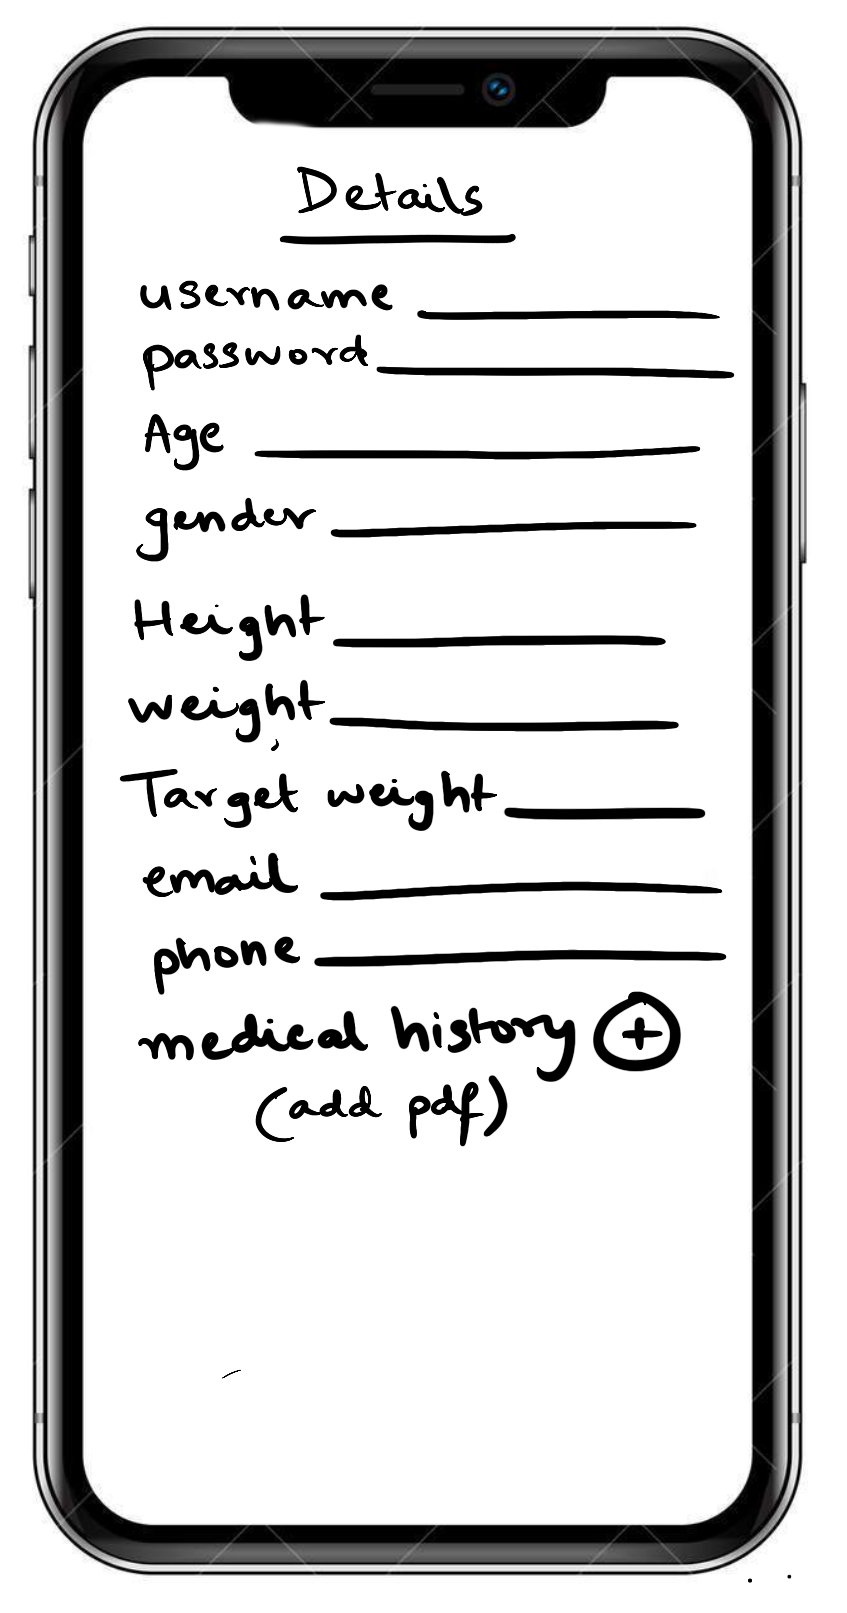 Details
username
password
Age
gender
Height
weight
Target weight
email
phone
medical history +
(add pdf)